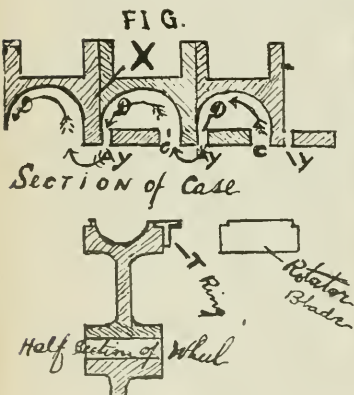 FIG.
X
D D D
y c' y c y
SECTION of Case
T Ring
Rotator
Blade
Half Section of Wheel